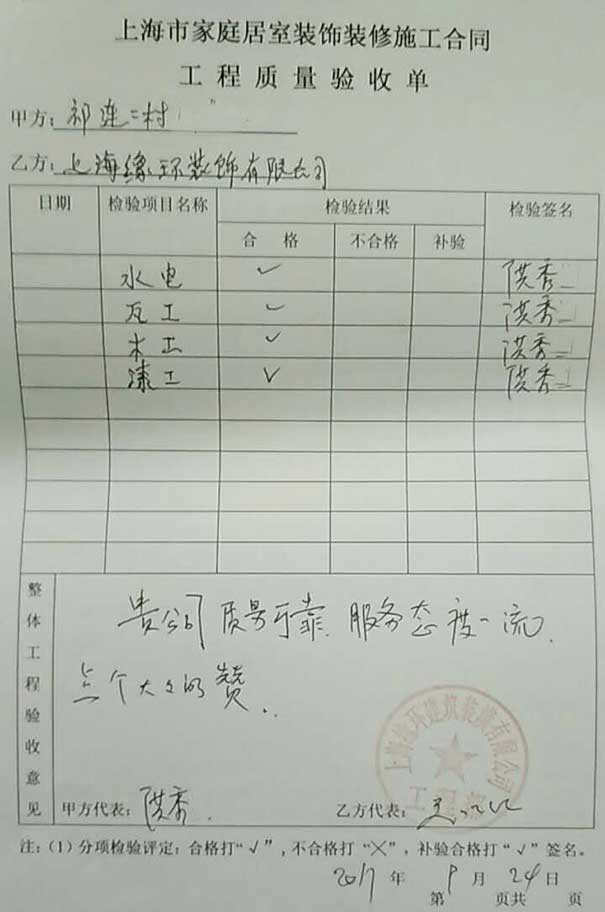 上海市家庭居室装饰装修施工合同
工程质量验收单
甲方：祁连二村
乙方：上海缘环装饰有限公司
日期 检验项目名称 检验结果 检验签名
合格 不合格 补验
水电 ✓
瓦工 ✓
木工 ✓
漆工 ✓
整体工程验收意见
贵公司质量可靠.服务态度一流.
点个大大的赞..
上海缘环建筑装潢有限公司
甲方代表： 乙方代表：
注：(1)分项检验评定：合格打“√”,不合格打“×”，补验合格打“√”签名。
2017年9月24日
第 页共 页